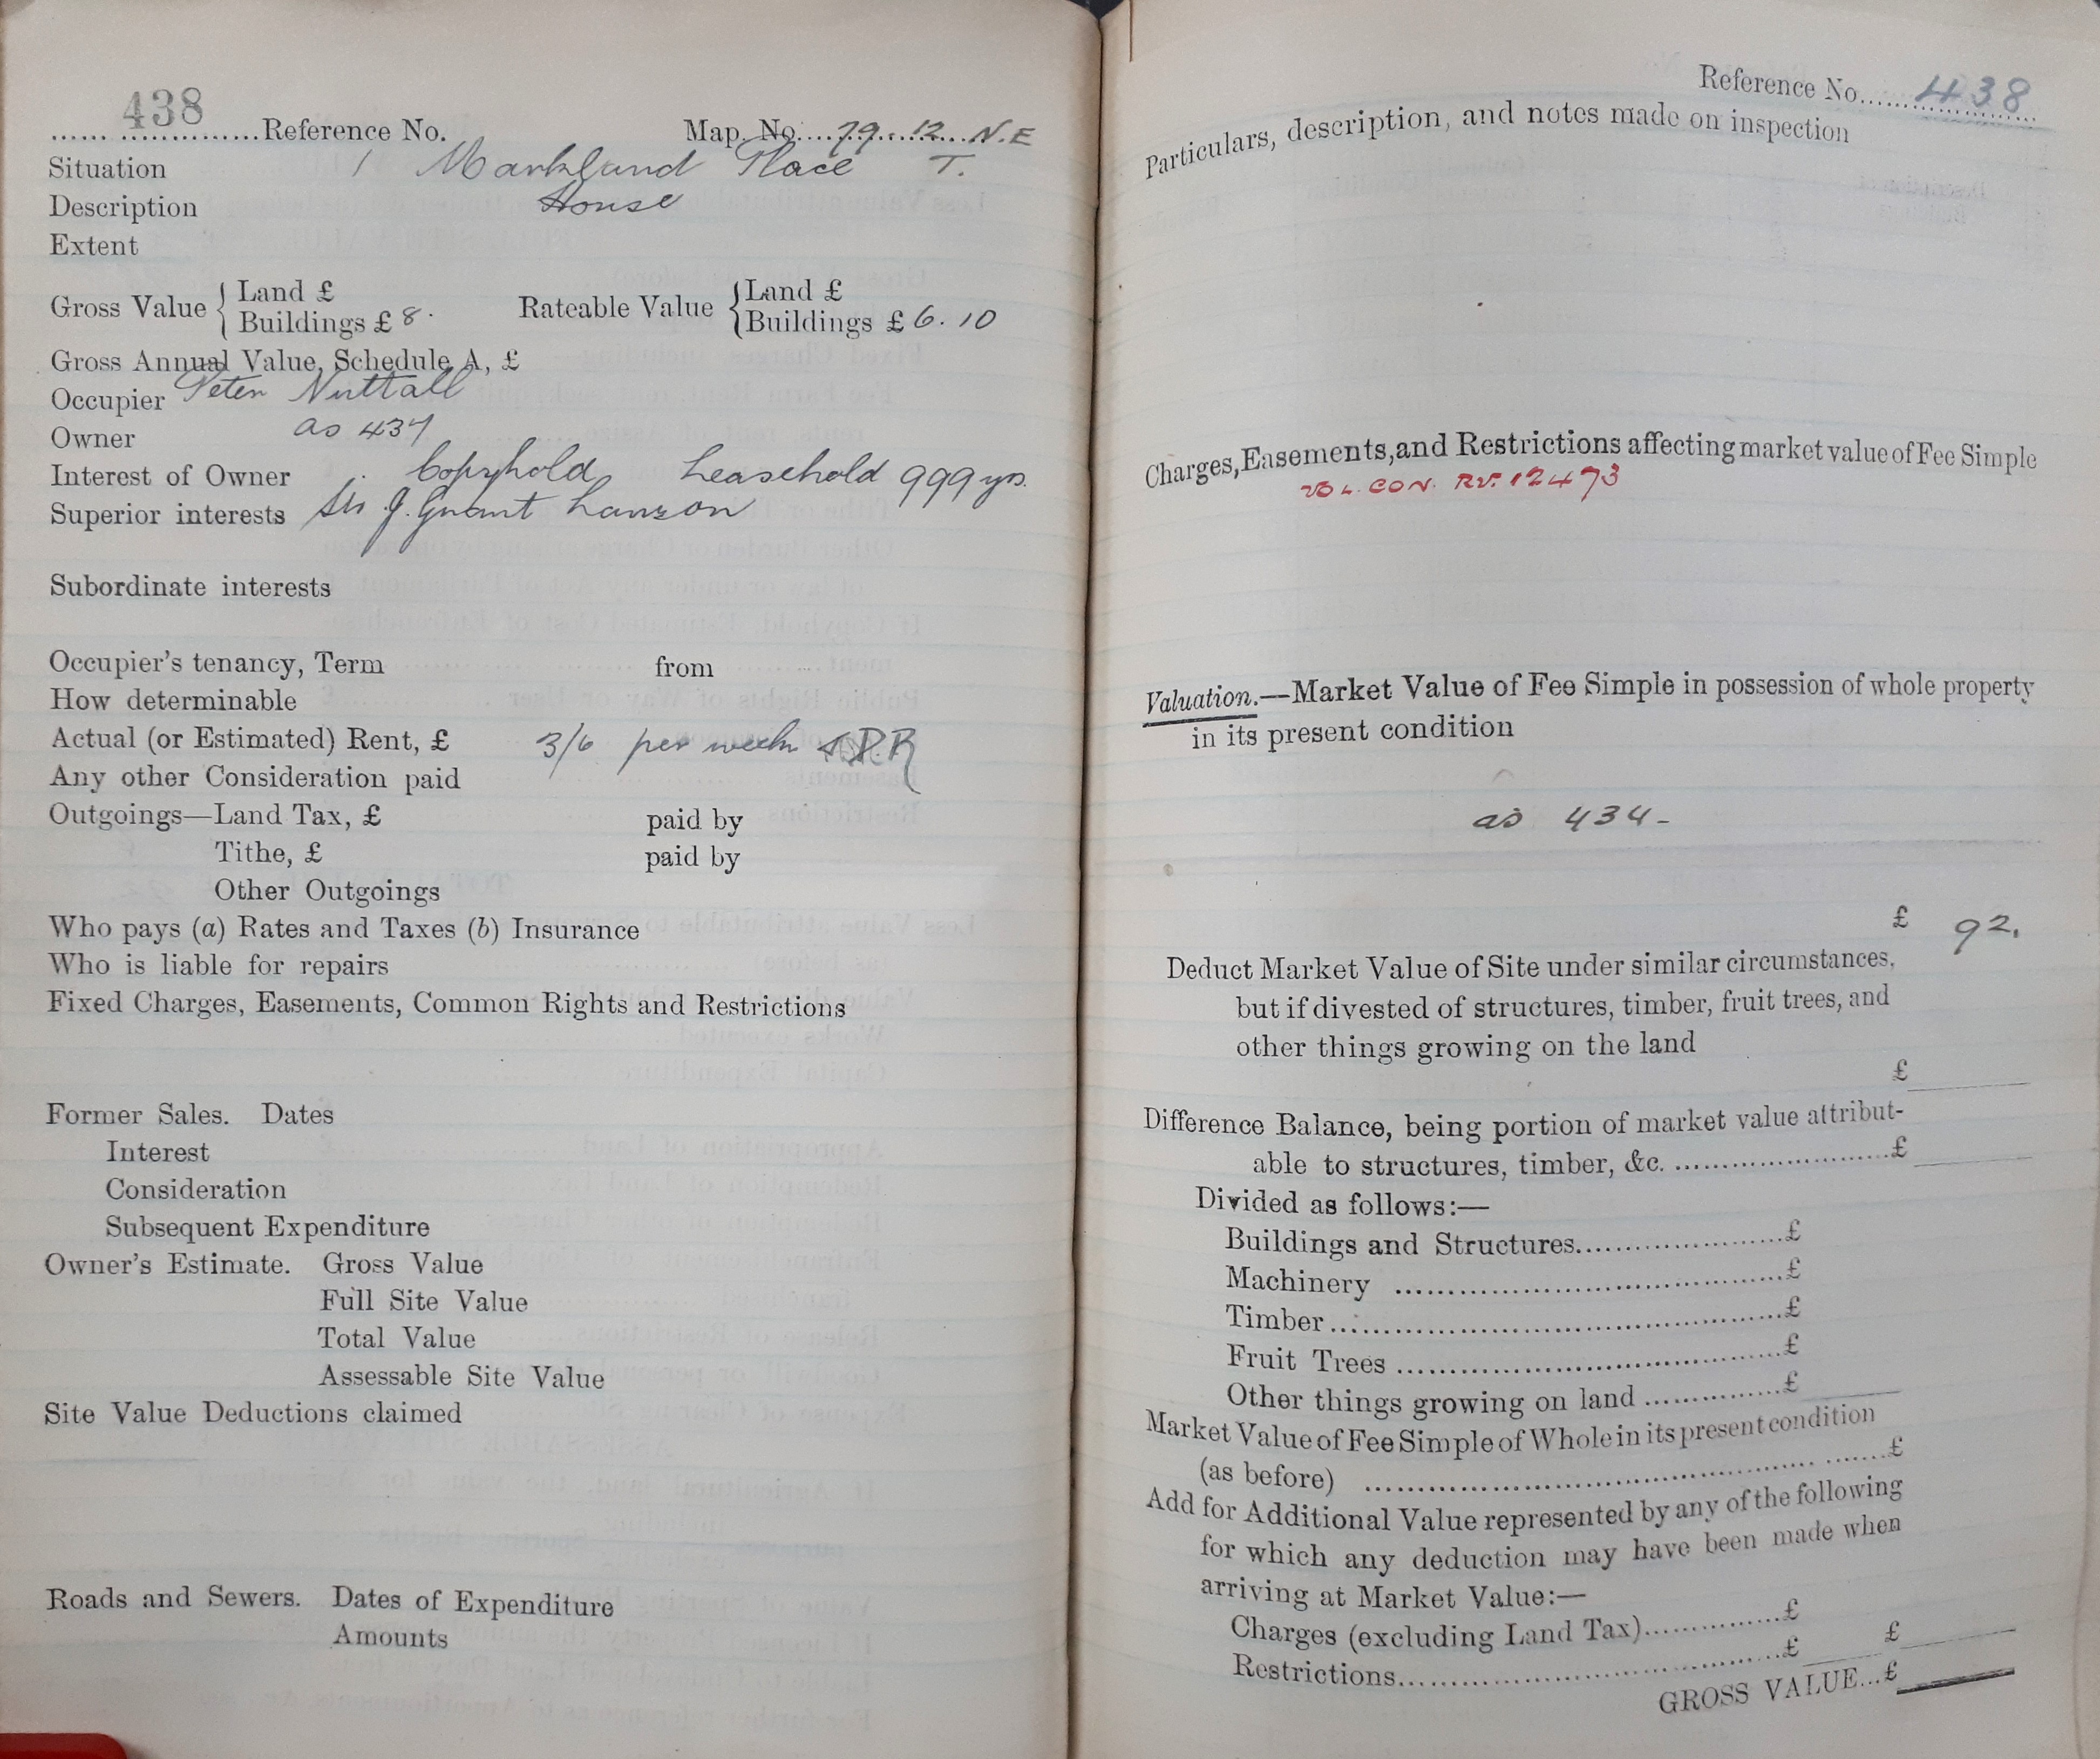 438
...... ..............Reference No. Map. No....79...12...N.E
Situation 1 Markland Place T.
Description House
Extent
Gross Value { Land £
Buildings £ 8. Rateable Value { Land £
Buildings £ 6.10
Gross Annual Value, Schedule A, £
Occupier Peter Nuttall
Owner as 437
Interest of Owner Copyhold Leasehold 999 yrs.
Superior interests Sir J. Grant Lawson
Subordinate interests
Occupier's tenancy, Term from
How determinable
Actual (or Estimated) Rent, £ 3/6 per week
Any other Consideration paid
Outgoings—Land Tax, £ paid by
Tithe, £ paid by
Other Outgoings
Who pays (a) Rates and Taxes (b) Insurance
Who is liable for repairs
Fixed Charges, Easements, Common Rights and Restrictions
Former Sales. Dates
Interest
Consideration
Subsequent Expenditure
Owner's Estimate. Gross Value
Full Site Value
Total Value
Assessable Site Value
Site Value Deductions claimed
Roads and Sewers. Dates of Expenditure
Amounts
Reference No. 438
Particulars, description, and notes made on inspection
Charges, Easements, and Restrictions affecting market value of Fee Simple
VOL. CON. RV. 12473
Valuation.—Market Value of Fee Simple in possession of whole property
in its present condition
as 434-
£ 92.
Deduct Market Value of Site under similar circumstances,
but if divested of structures, timber, fruit trees, and
other things growing on the land
£
Difference Balance, being portion of market value attribut-
able to structures, timber, &c. ........................£
Divided as follows:—
Buildings and Structures.......................£
Machinery .........................................£
Timber................................................£
Fruit Trees .........................................£
Other things growing on land ...............£
Market Value of Fee Simple of Whole in its present condition
(as before) ................................................ .......£
Add for Additional Value represented by any of the following
for which any deduction may have been made when
arriving at Market Value:—
Charges (excluding Land Tax)...............£
Restrictions..........................................£ £
GROSS VALUE...£